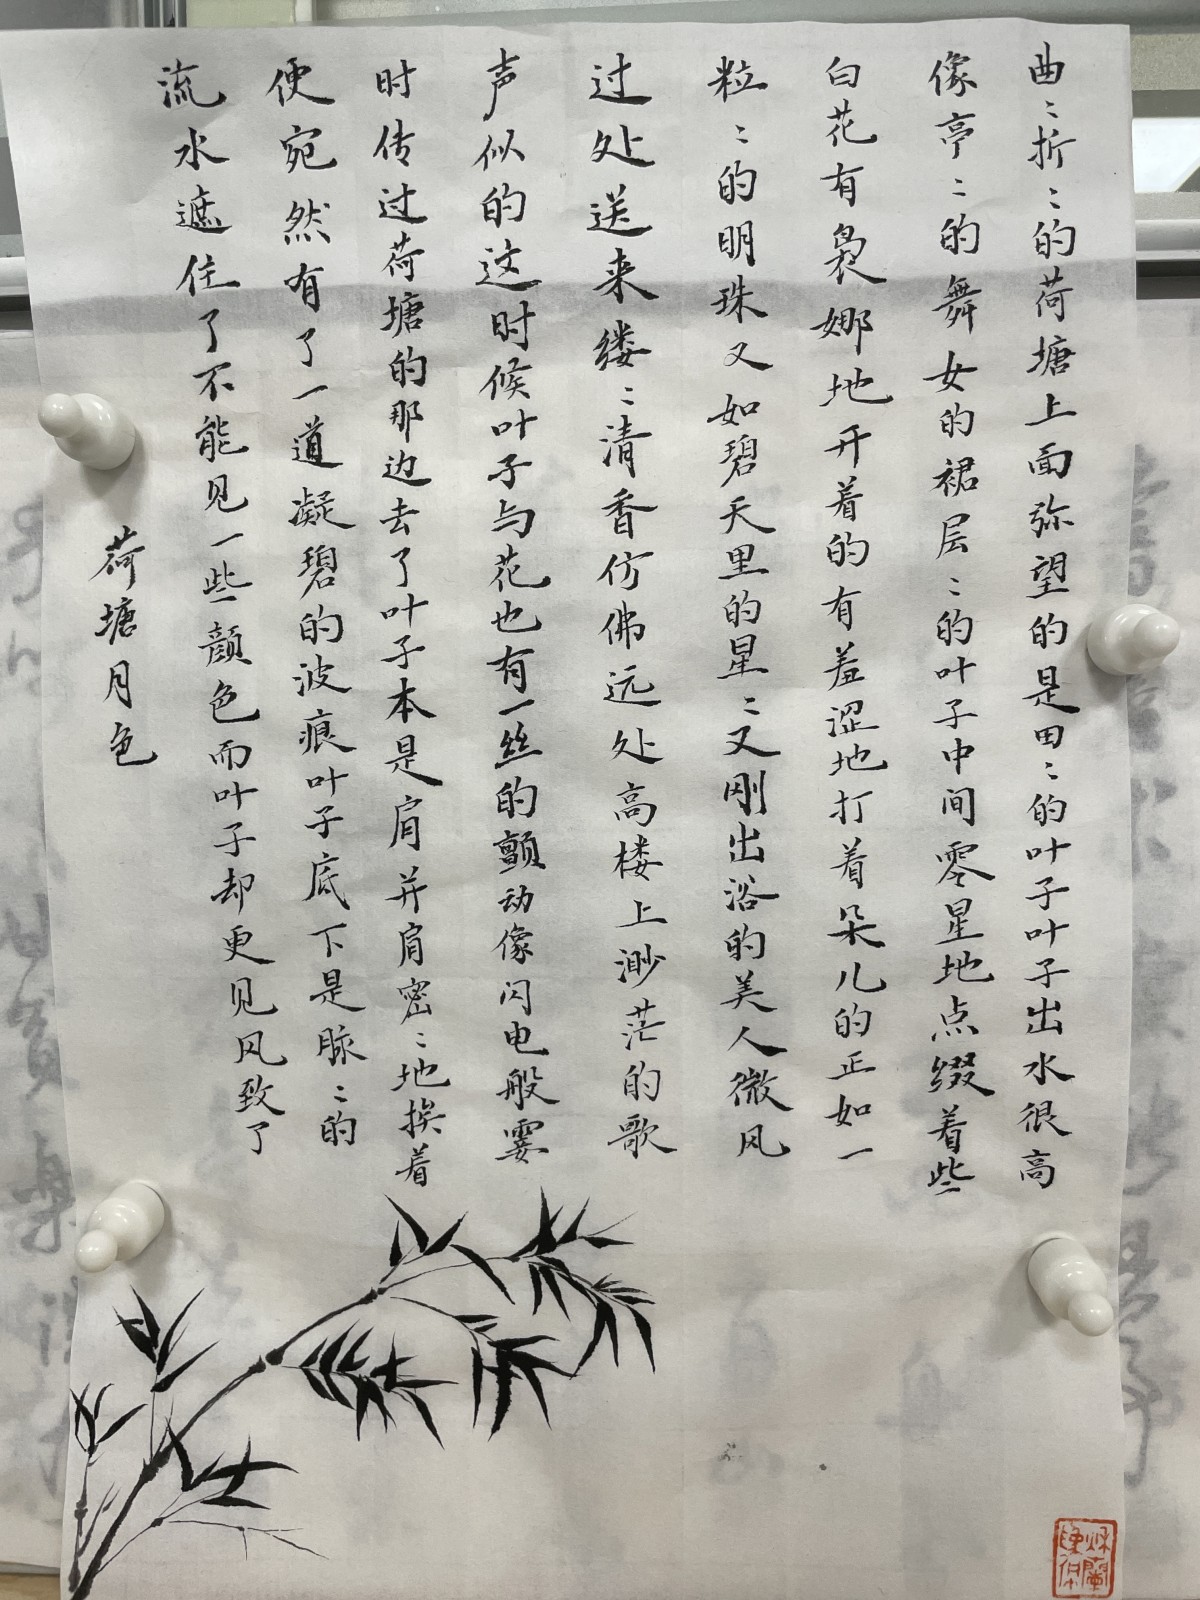 曲〻折〻的荷塘上面弥望的是田〻的叶子叶子出水很高
像亭〻的舞女的裙层〻的叶子中间零星地点缀着些
白花有袅娜地开着的有羞涩地打着朵儿的正如一
粒〻的明珠又如碧天里的星〻又刚出浴的美人微风
过处送来缕〻清香仿佛远处高楼上渺茫的歌
声似的这时候叶子与花也有一丝的颤动像闪电般霎
时传过荷塘的那边去了叶子本是肩并肩密〻地挨着
便宛然有了一道凝碧的波痕叶子底下是脉〻的
流水遮住了不能见一些颜色而叶子却更见风致了
荷塘月色